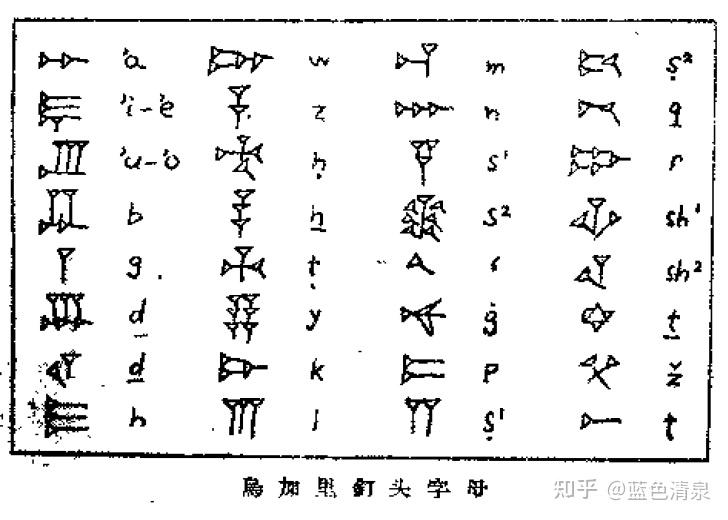 𐎀 'a 𐎆 w 𐎎 m ṣ²
𐎛 'i-'e 𐎇 z 𐎐 n 𐎖 q
𐎜 'u-'o 𐎈 ḥ 𐎒 s¹ 𐎗 r
𐎁 b 𐎃 ẖ 𐎝 s² sh¹
𐎂 g 𐎉 ṭ 𐎓 ʿ sh²
𐎄 d 𐎊 y 𐎙 ġ 𐎘 ṯ
𐎏 ḏ 𐎋 k 𐎔 p ž
𐎅 h 𐎍 l 𐎕 ṣ¹ 𐎚 t
烏加里釘头字母
知乎 @蓝色清泉